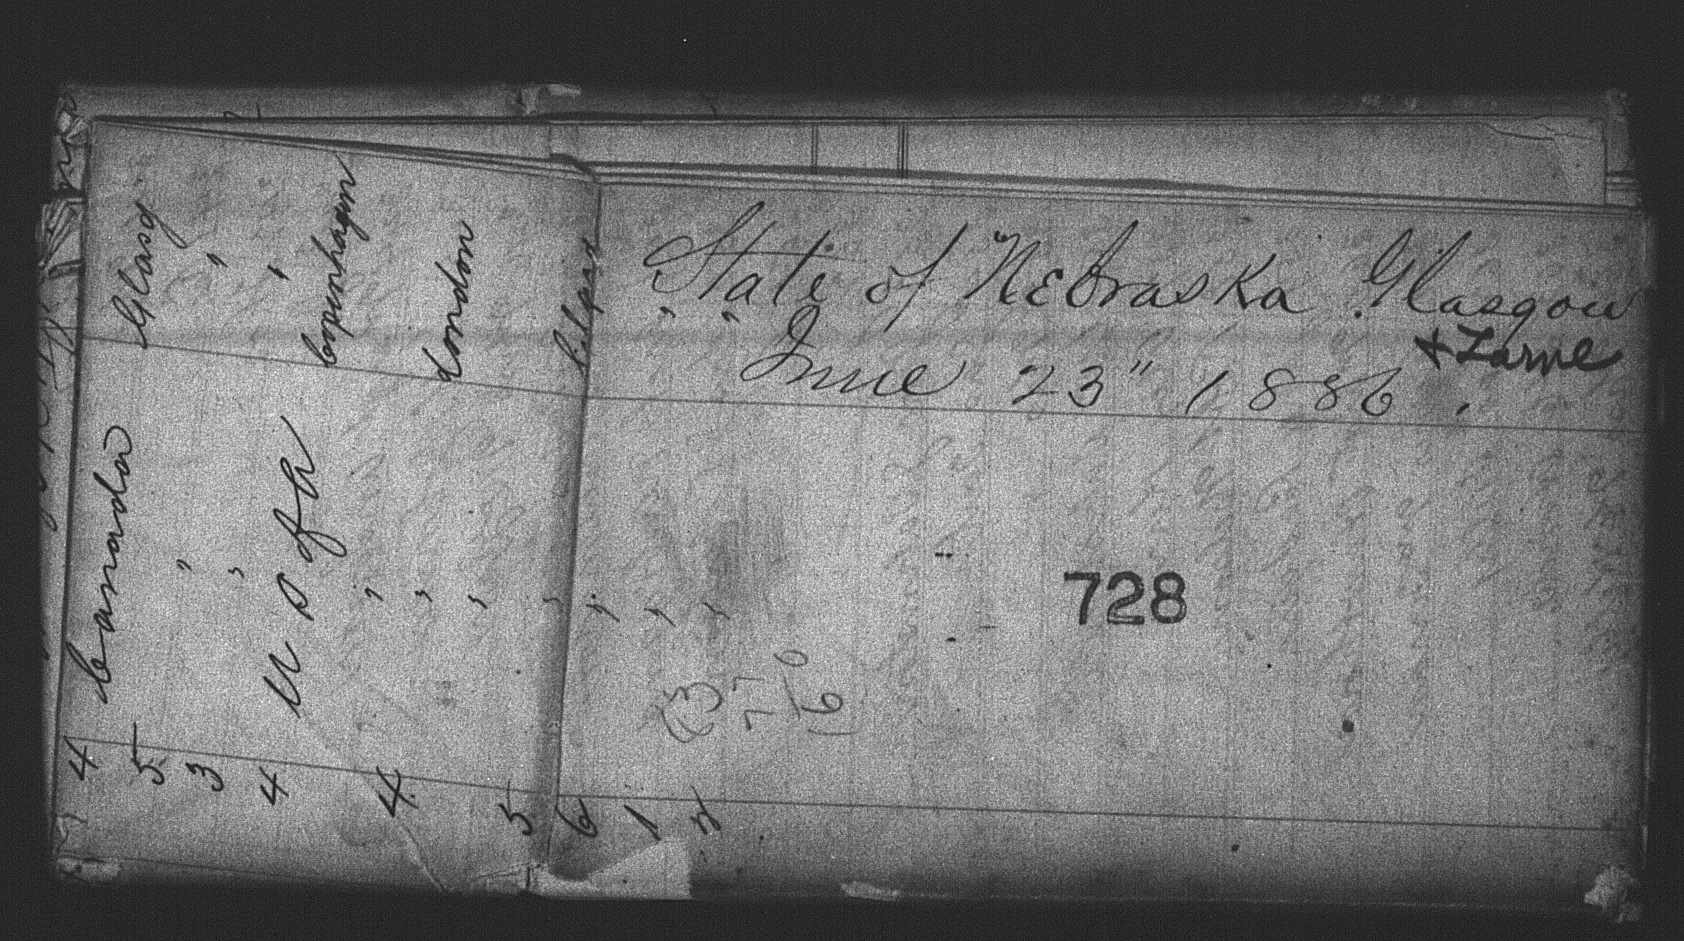 State of Nebraska. Glasgow
& Larne
" " June 23" 1886.
728
13
77
6
16
Glasg
"
"
Copenhagen
London
Canada
"
"
U S of A
"
"
"
"
"
"
"
4
5
3
4
4
5
6
1
4